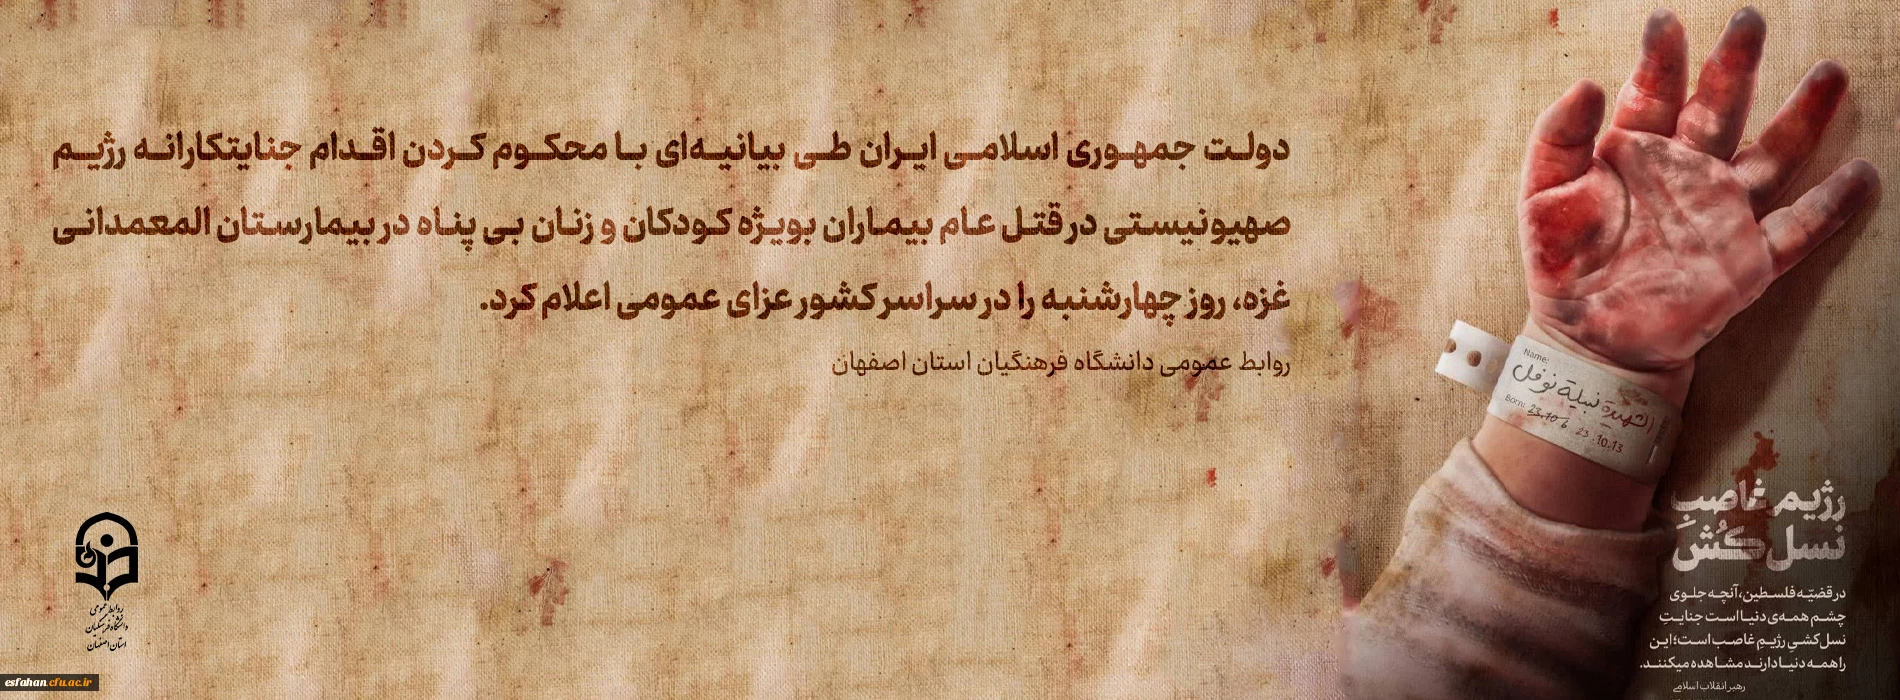 دولت جمهوری اسلامی ایران طی بیانیه‌ای با محکوم کردن اقدام جنایتکارانه رژیم
صهیونیستی در قتل عام بیماران بویژه کودکان و زنان بی پناه در بیمارستان المعمدانی
غزه، روز چهارشنبه را در سراسر کشور عزای عمومی اعلام کرد.
روابط عمومی دانشگاه فرهنگیان استان اصفهان
Name:
الشهيدة نبيلة نوفل
Born: 23.10.6 23.10.13
رژیم غاصبِ
نسل‌کُش
در قضیّه فلسطین، آنچه جلوی
چشم همه‌ی دنیا است جنایتِ
نسل‌کشیِ رژیمِ غاصب است؛ این
را همه دنیا دارند مشاهده میکنند.
رهبر انقلاب اسلامی
روابط عمومی
دانشگاه فرهنگیان
استان اصفهان
esfahan.cfu.ac.ir